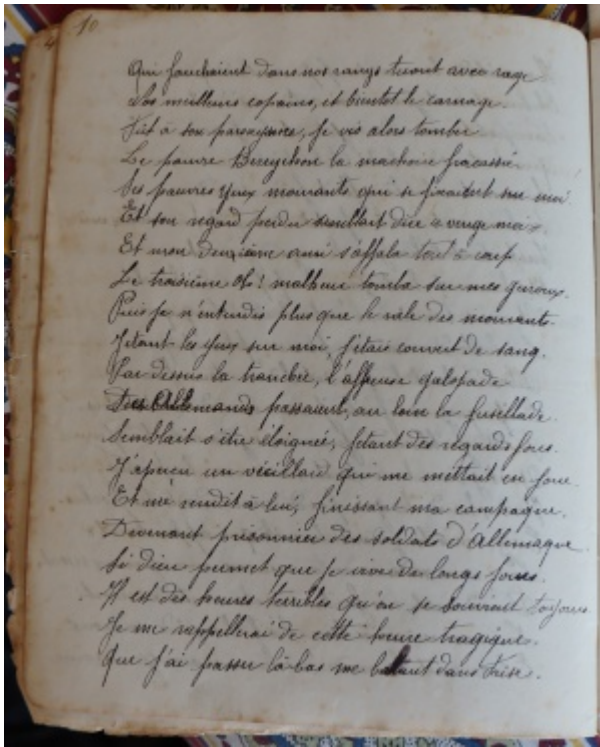 10
Qui fauchaient dans nos rangs tuant avec rage
Nos meilleurs copains, et bientot le carnage.
Fut à son paroxysme, je vis alors tomber
Le pauvre la machoire fracassée
Ses pauvres yeux mourants qui se fixaient sur moi.
Et son regard perdu semblait dire « venge moi ».
Et mon deuxième ami s'affala tout à coup
Le troisième Oh! malheur tomba sur mes genoux.
Puis je n'entendis plus que le râle des mourants.
Jetant les yeux sur moi, j'étais couvert de sang.
Par dessus la tranchée, l'affreuse galopade
Des Allemands passaient, au loin la fusillade.
Semblait s'être éloignée, jetant des regards fous.
J'aperçu un vieillard qui me mettait en joue.
Et me rendit à lui, finissant ma campagne.
Devenant prisonnier des soldats d'Allemagne
Si dieu permet que je vive de longs jours.
Il est des heures terribles qu'on se souvient toujours
Je me rappellerai de cette heure tragique.
Que j'ai passer là-bas me battant dans